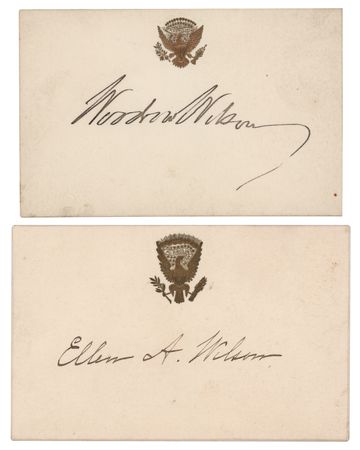 Woodrow Wilson
Ellen A. Wilson